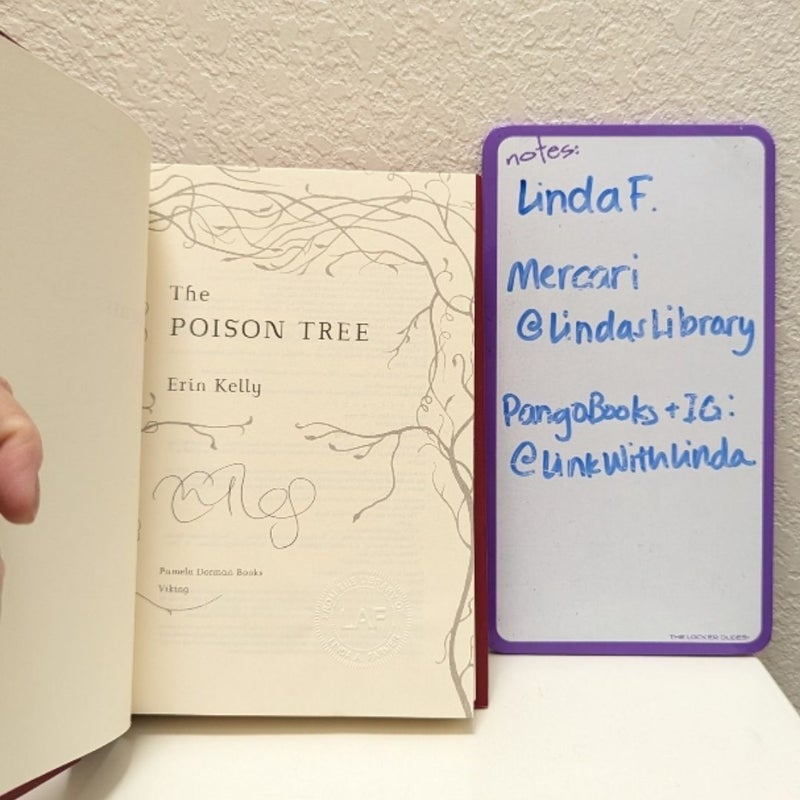 The
POISON TREE
Erin Kelly
Pamela Dorman Books
Viking
FROM THE LIBRARY OF
LAF
notes:
Linda F.
Mercari
@LindasLibrary
PangoBooks + IG:
@LinkWithLinda
THE LOCKER DUDES